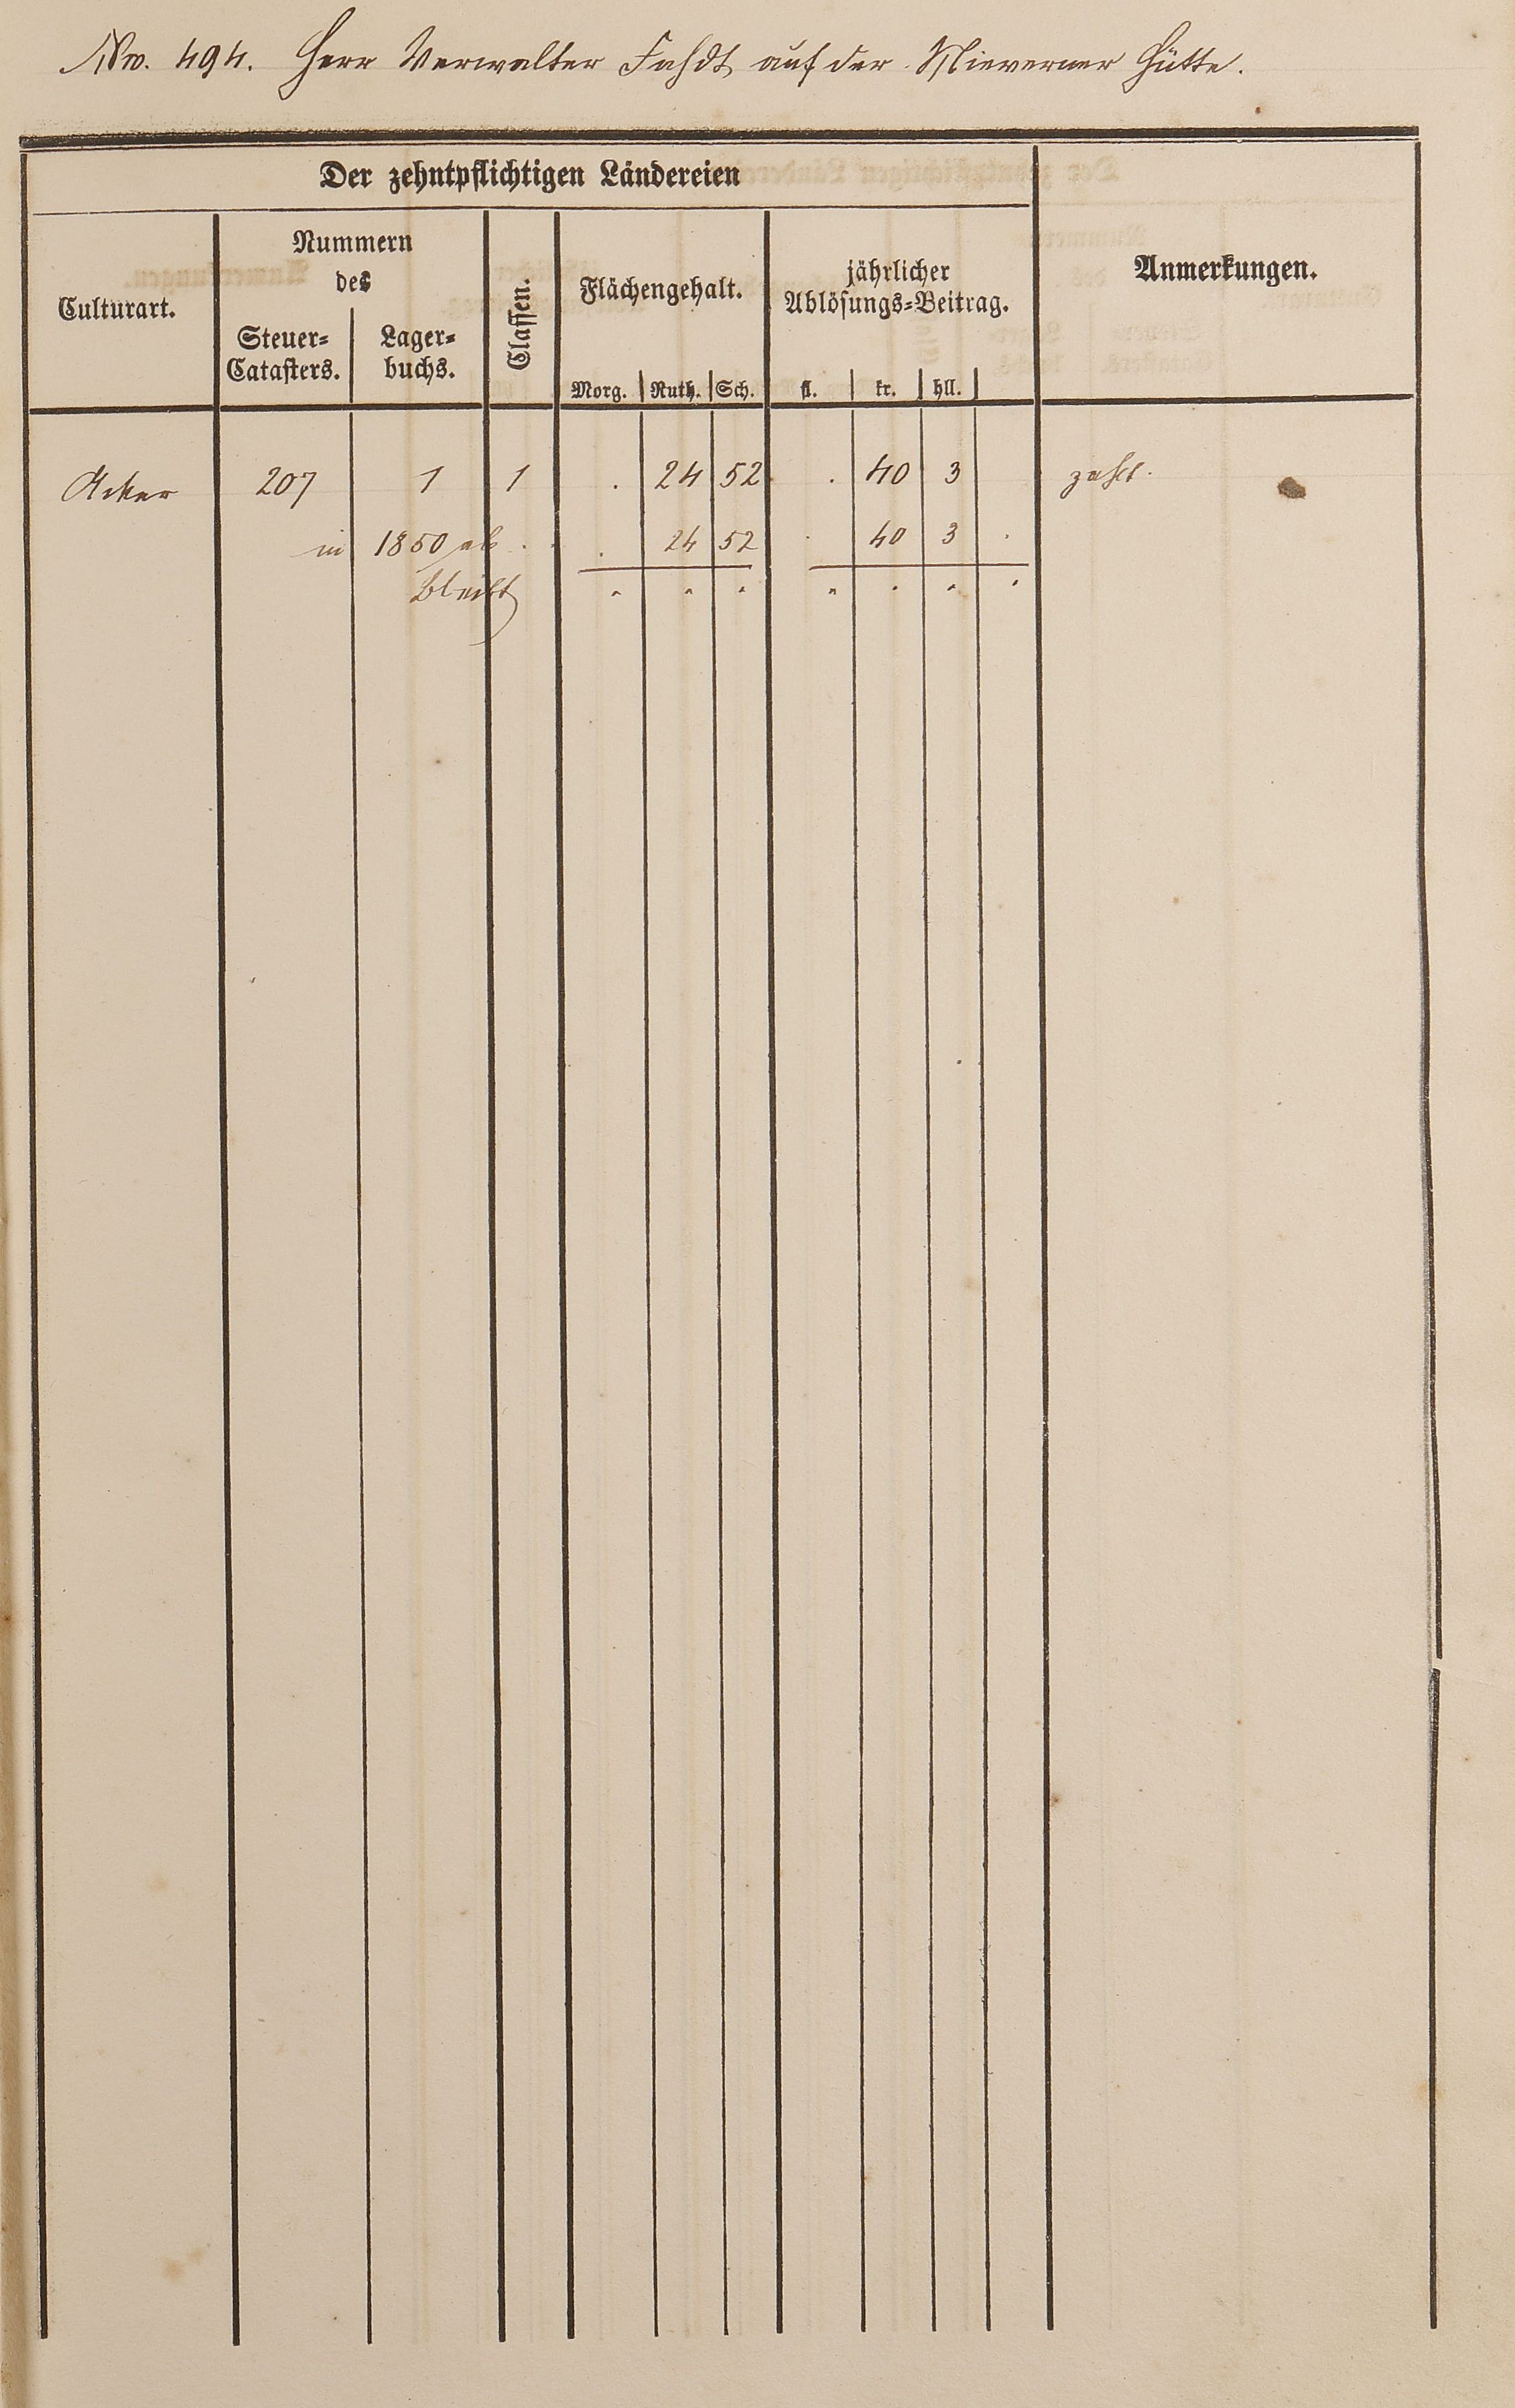 Nro. 494. Herr Verwalter Fahdt auf der Nieverner Hütte.
Der zehntpflichtigen Ländereien
Culturart.
Nummern
des
Steuer-
Catasters.
Lager-
buchs.
Classen.
Flächengehalt.
Morg. Ruth. Sch.
jährlicher
Ablösungs-Beitrag.
fl. kr. hll.
Anmerkungen.
Acker 207 1 1 . 24 52 . 40 3 zahlt.
in 1850 ab . . . 24 52 . 40 3 .
bleibt " " " " " " "